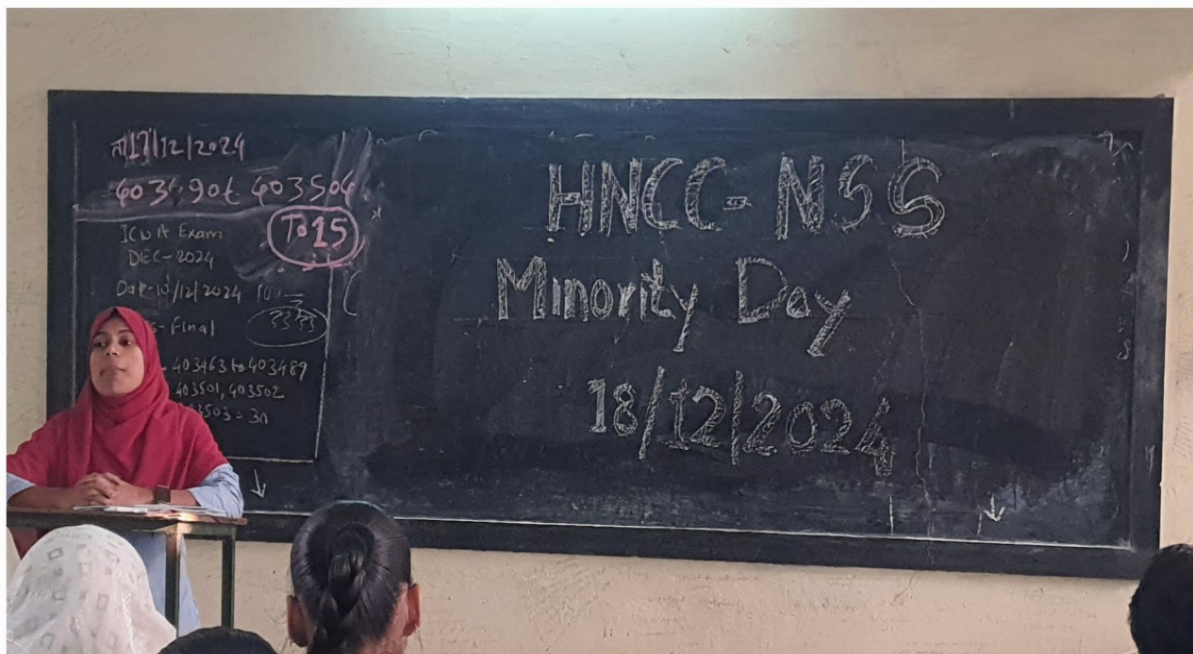 17/12/2024
403504
To 15
ICWA Exam
DEC-2024
10/12/2024
Final
403463 to 403489
403501, 403502
= 30
HNCC-NSS
Minority Day
18/12/2024